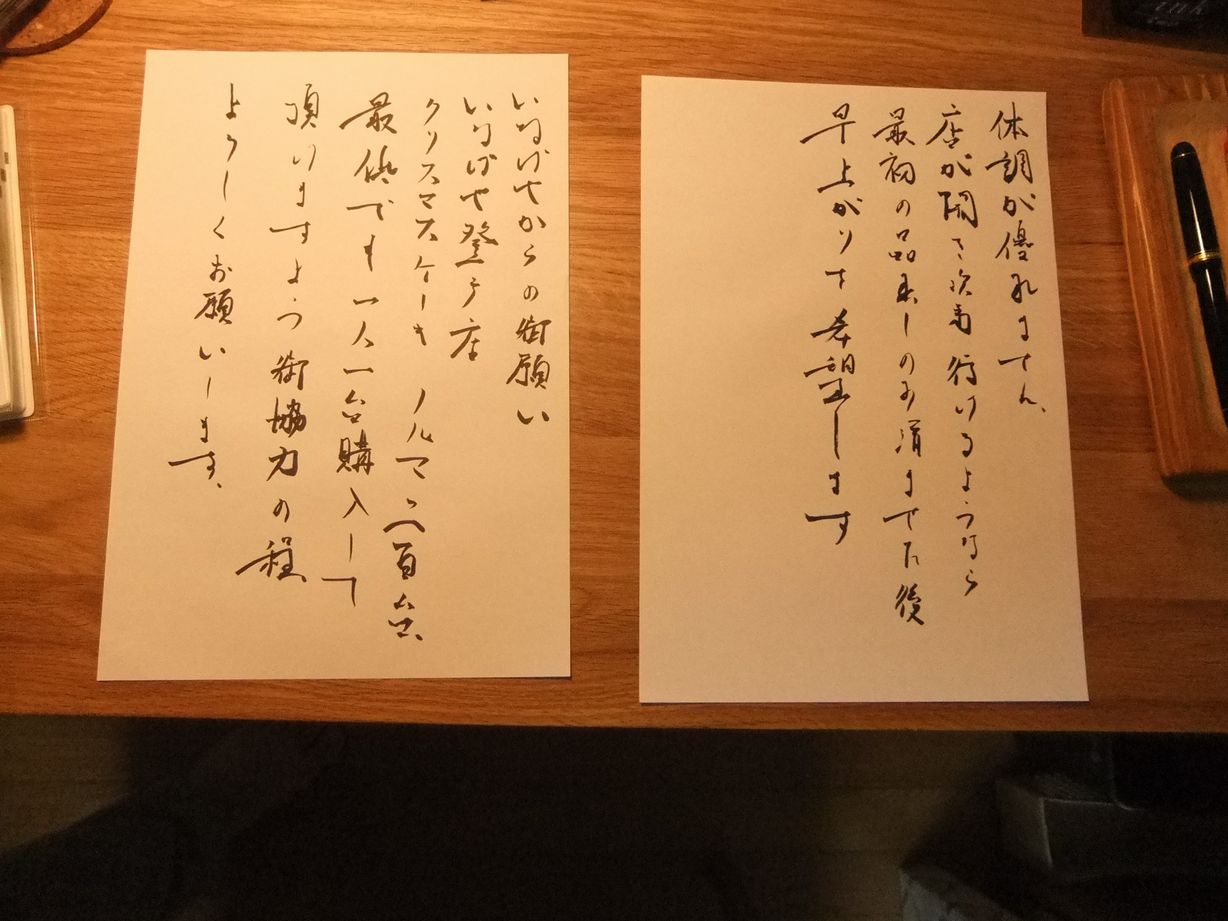 体調が優れません、
店が開き次第行けるようなら
最初の品出しのみ済ませた後
早上がりを希望します
いなげやからの御願い
いなげや登戸店
クリスマスケーキ ノルマ百台、
最低でも一人一台購入して
頂けますよう御協力の程
よろしくお願いします、